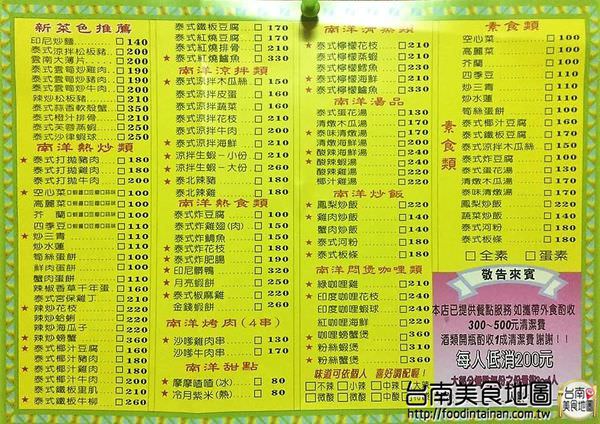 新菜色推薦
印尼炒麵 □140
泰式涼拌松板豬 □200
雲南大薄片 □200
泰式雲筍炒雞肉 □190
泰式雲筍炒豬肉 □190
泰式雲筍炒牛肉 □200
辣炒松板豬 □210
泰式蒜香軟殼蟹 □350
泰式橙汁排骨 □210
泰式芙蓉蒸蝦 □250
泰式沙律蝦球 □250
南洋熱炒類
★泰式打拋豬肉 □180
泰式打拋雞肉 □180
泰式打拋牛肉 □200
★空心菜 □100
高麗菜 □100
芥蘭 □100
四季豆 □110
★炒三青 □110
炒水蓮 □110
筍絲蛋餅 □110
鮮肉蛋餅 □110
蟹肉蛋餅 □110
辣椒香草千年蛋 □160
泰式宮保雞丁 □210
★辣炒花枝 □210
辣炒蛤蜊 □210
辣炒海瓜子 □210
★辣炒螃蟹 □360
★泰式椰汁豆腐 □160
泰式椰汁豬肉 □180
泰式椰汁牛肉 □200
★泰式鐵板里肌 □210
★泰式鐵板牛柳 □260
泰式鐵板豆腐 □170
泰式紅燒豆腐 □170
泰式紅燒排骨 □210
★泰式紅燒鱸魚 □330
南洋涼拌類
★泰式涼拌木瓜絲 □150
泰式涼拌皮蛋 □160
泰式涼拌蔬菜 □160
泰式涼拌花枝 □210
泰式涼拌牛肉 □210
泰式涼拌海鮮 □210
★涼拌生蝦-小份 □210
★涼拌生蝦-大份 □260
★泰北辣豬 □180
泰北辣雞 □180
南洋熱食類
泰式炸豆腐 □100
泰式炸雞翅(肉) □150
泰式炸鯛魚 □150
泰式炸花枝 □180
泰式炸肥腸 □190
★印尼髒鴨 □320
★月亮蝦餅 □250
★泰式椒麻雞 □250
★金錢蝦餅 □280
南洋烤肉(4串)
★沙嗲雞肉串 □150
沙嗲牛肉串 □170
南洋甜點
★摩摩喳喳(冰) □80
★冷月紫米(熱) □80
南洋清蒸類
★泰式檸檬花枝 □210
泰式檸檬蒸蝦 □210
泰式檸檬魚片 □230
★泰式檸檬海鮮 □210
★泰式檸檬鱸魚 □330
南洋湯品
泰式蛋花湯 □130
清燉木瓜湯 □170
★泰味清燉湯 □170
清燉海鮮湯 □200
★酸辣蝦湯 □200
★酸辣海鮮湯 □200
酸辣雞湯 □200
椰汁雞湯 □200
南洋炒飯
★鳳梨炒飯 □120
★雞肉炒飯 □110
蟹肉炒飯 □110
★泰式河粉 □180
泰式板條 □180
南洋悶煲咖哩類
★綠咖哩雞 □210
印度咖哩花枝 □210
印度咖哩蝦球 □240
紅咖哩海鮮 □220
咖哩螃蟹煲 □360
★粉絲蝦煲 □250
★粉絲蟹煲 □360
味道可依個人喜好調配喔!
□不辣 □小辣 □中辣 □大辣
□微酸
素食類
空心菜 □100
高麗菜 □100
芥蘭 □100
四季豆 □110
炒三青 □110
炒水蓮 □110
筍絲蛋餅 □110
素食類
泰式椰汁豆腐 □160
泰式鐵板豆腐 □170
泰式涼拌木瓜絲 □150
泰式炸豆腐 □100
泰式蛋花湯 □130
清燉木瓜湯 □170
泰味清燉湯 □170
鳳梨炒飯 □120
蔬菜炒飯 □110
泰式河粉 □180
泰式板條 □180
□全素 □蛋素
敬告來賓
本店已提供餐點服務如攜帶外食酌收
300~500元清潔費
酒類開瓶酌收1成清潔費 謝謝!!
每人低消200元
台南美食地圖
http://foodintainan.com.tw
台南
美食地圖